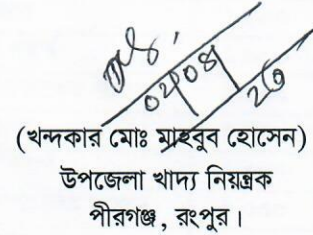 (খন্দকার মোঃ মাহবুব হোসেন)
উপজেলা খাদ্য নিয়ন্ত্রক
পীরগঞ্জ , রংপুর।